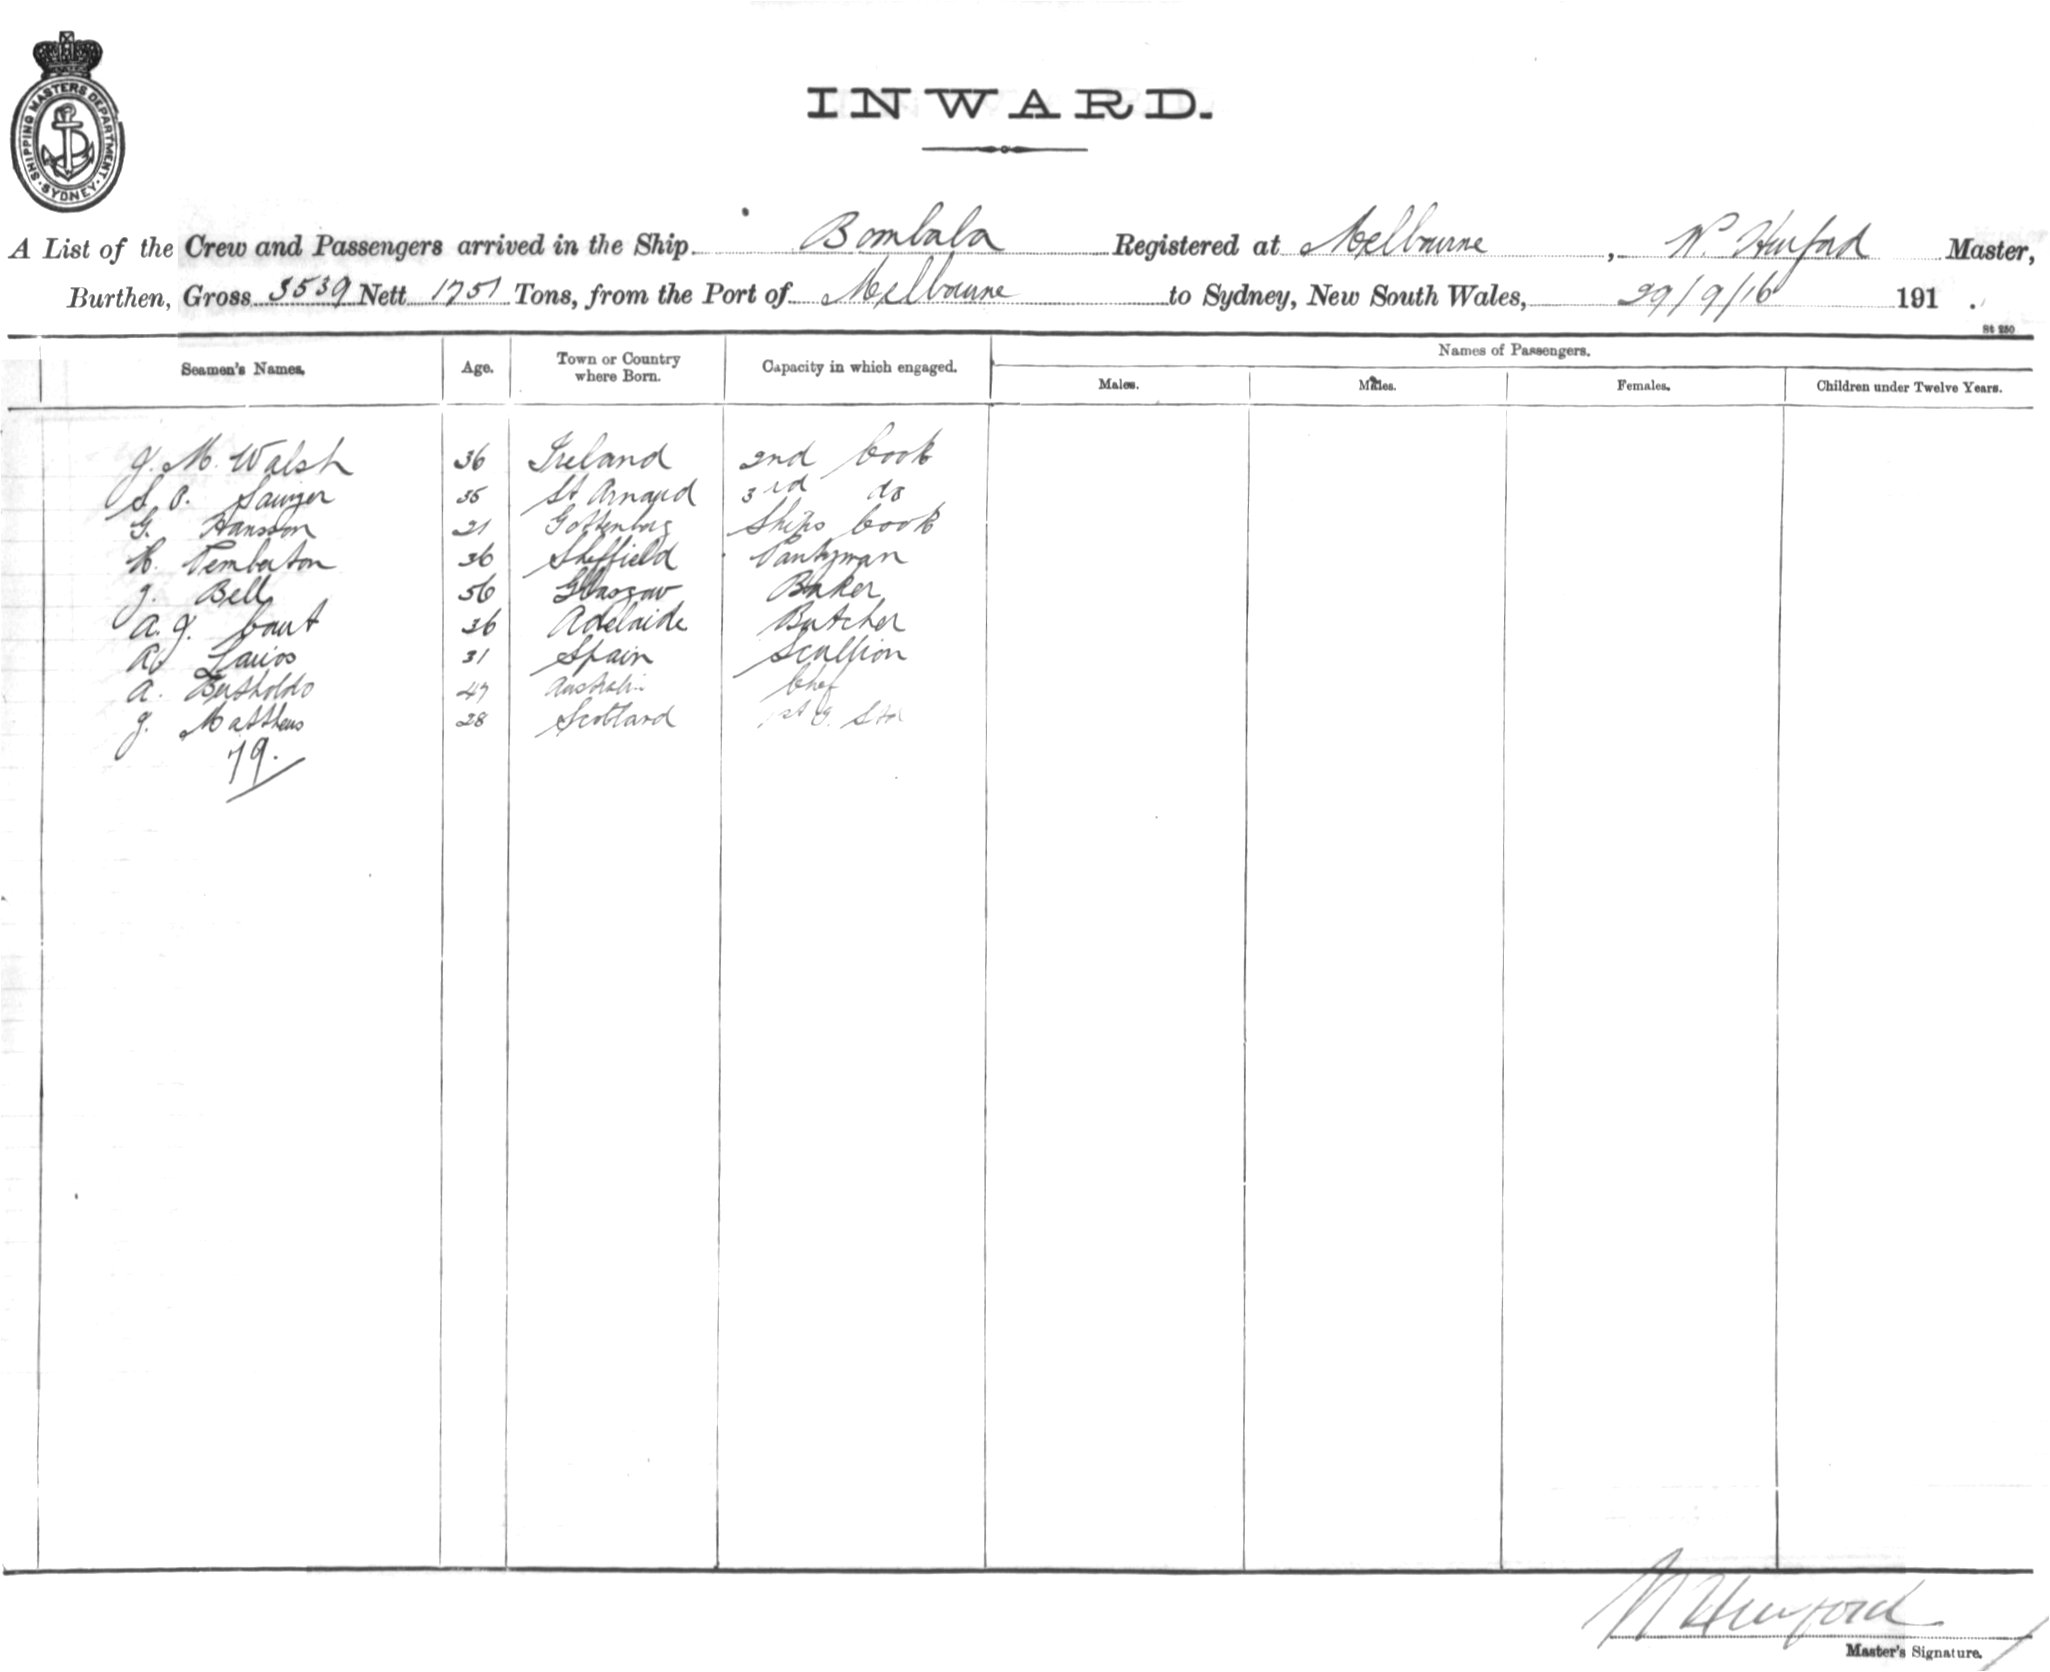 SHIPPING MASTERS DEPARTMENT. SYDNEY
INWARD.
A List of the Crew and Passengers arrived in the Ship Bombala Registered at Melbourne, W. Hurford Master,
Burthen, Gross 3539 Nett 1751 Tons, from the Port of Melbourne to Sydney, New South Wales, 29/9/16 191 .
St 250
Seamen's Names. Age. Town or Country where Born. Capacity in which engaged. Names of Passengers.
Males. Males. Females. Children under Twelve Years.
J. M. Walsh 36 Ireland 2nd Cook
S. O. Sawyer 35 St Arnaud 3rd do
G. Hansson 21 Gottenborg Ships Cook
H. Pemberton 36 Sheffield Pantryman
J. Bell 56 Glasgow Baker
A. J. Caut 36 Adelaide Butcher
A. Larios 31 Spain Scullion
A. Bertholdo 47 Australia Chef
J. Matthews 28 Scotland 1st G. Std
79.
W Hurford
Master's Signature.